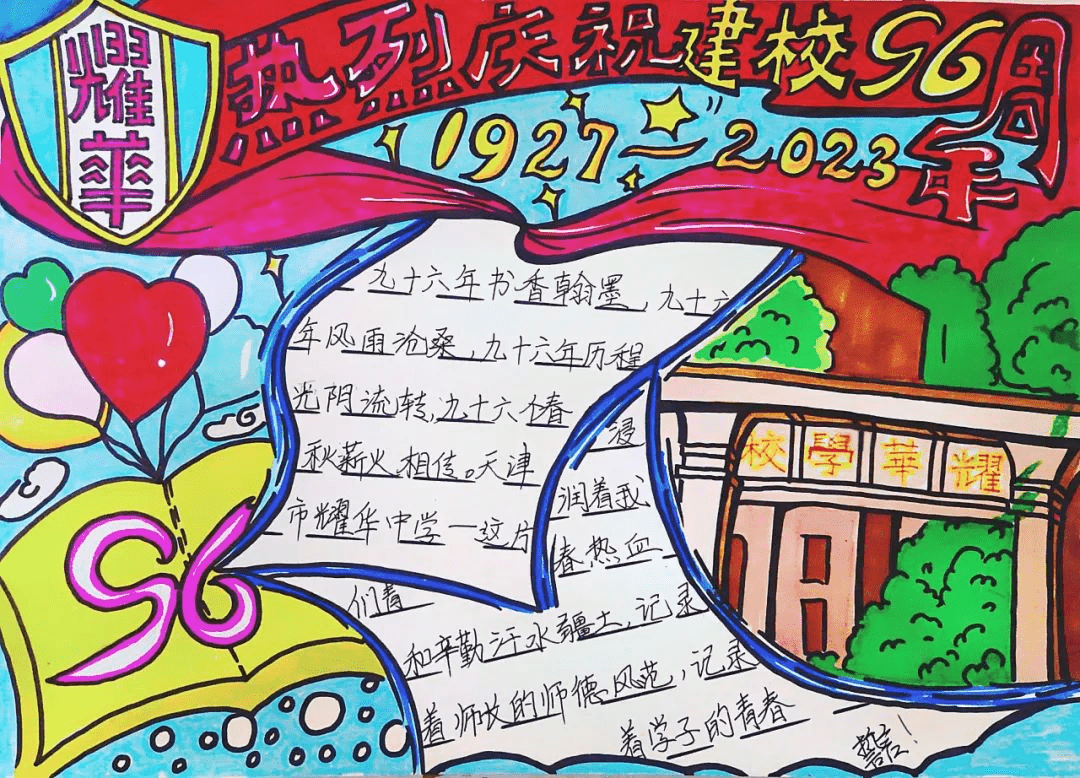 耀華
热烈庆祝建校96周年
1927—2023
九十六年书香翰墨，九十六
年风雨沧桑，九十六年历程
光阴流转，九十六个春
秋薪火相传。天津
市耀华中学一这片
浸
润着我
们青
春热血
和辛勤汗水疆土，记录
着师长的师德风范，记录
着学子的青春
誓言！
耀華學校
96